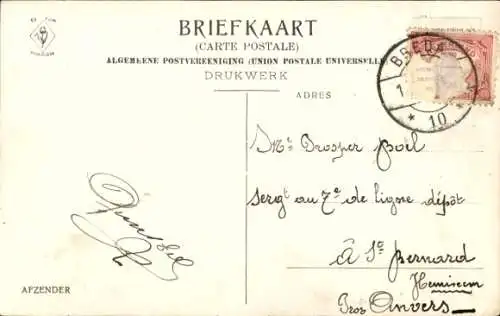 BRIEFKAART
(CARTE POSTALE)
ALGEMEENE POSTVEREENIGING (UNION POSTALE UNIVERSELLE)
DRUKWERK
ADRES
BREDA
10
Mr Prosper Poël
Sergt au 7e de ligne dépôt
à St Bernard
Hemixem
Prov Anvers
AFZENDER